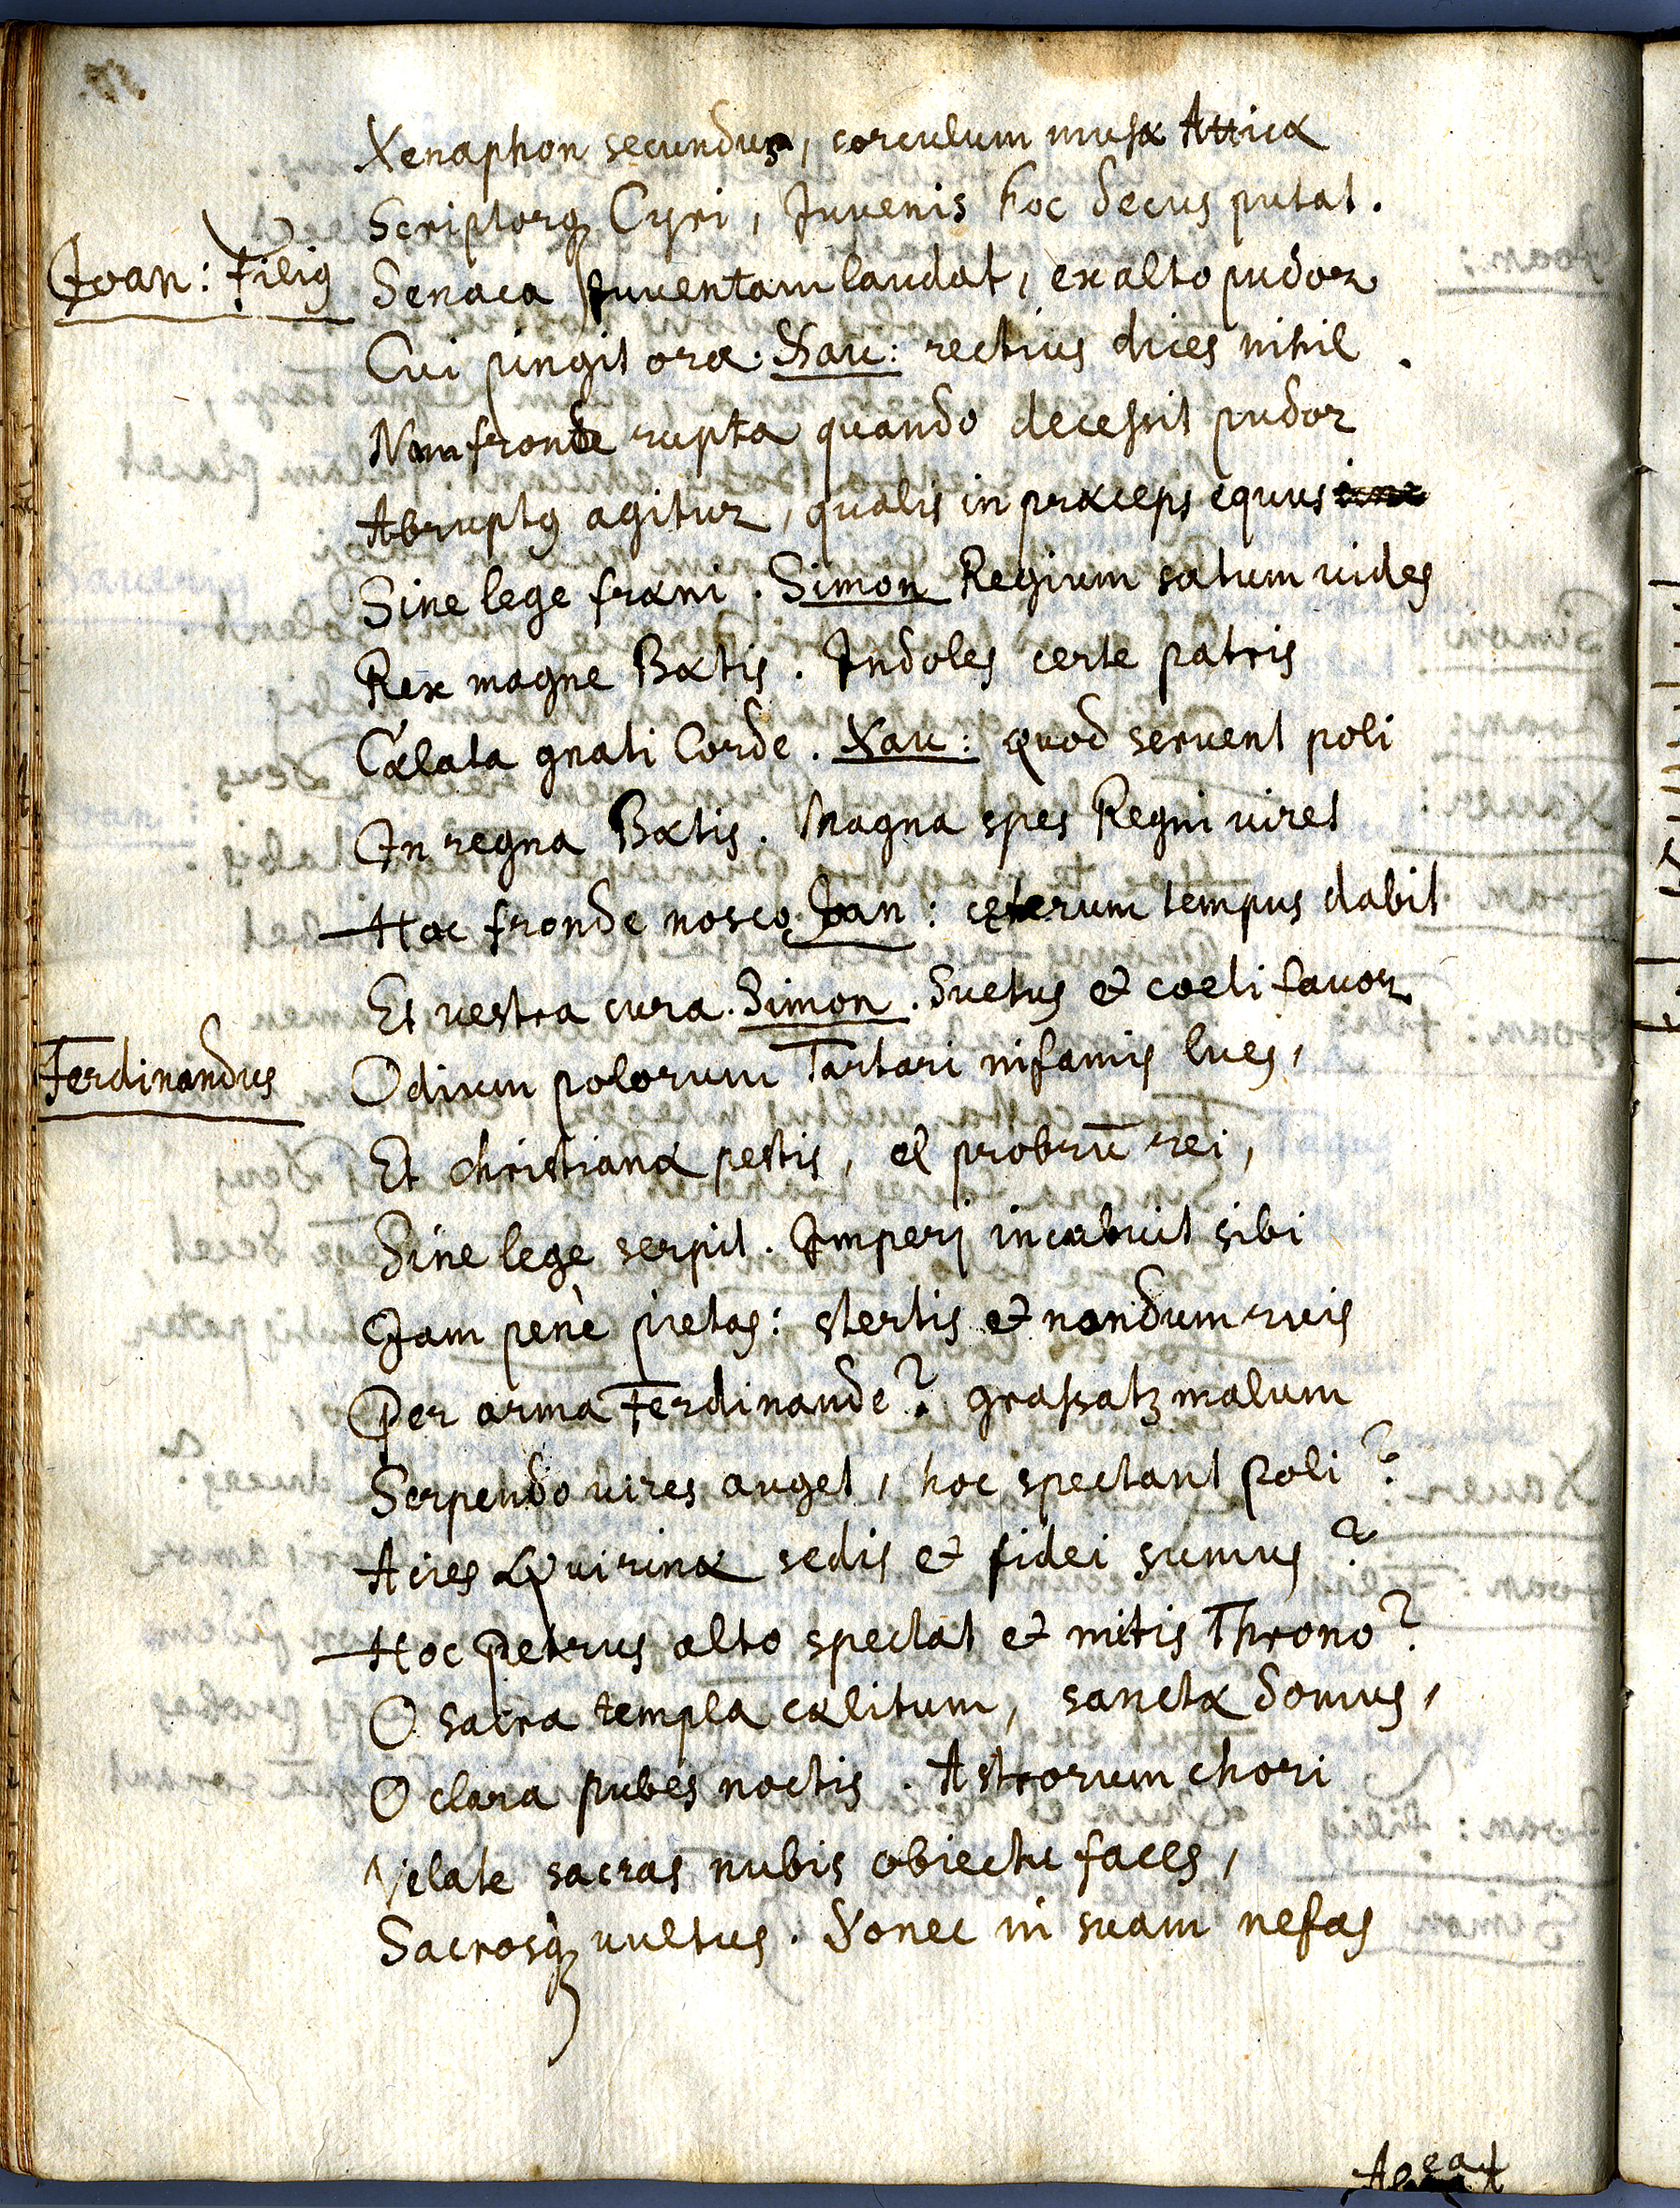 Xenaphon secundus, corculum musæ Atticæ
Scriptorq; Cyri, Juvenis hoc decus putat.
Joan: Filiꝰ Senaca Juventam laudat, ex alto pudor
Cui pingit ora. Xau: rectius dices nihil.
Nam fronde rupta quando decessit pudor
Abruptꝰ agitur, qualis in præceps equus
Sine lege fræni. Simon Regium satum vides
Rex magne Bætis. Indoles certe patris
Cælata gnati Corde. Xau: quod servent poli
In regna Bætis. Magna spes Regni viret
Hac fronde nosco. Joan: cęterum tempus dabit
Et vestra cura. Simon. Suetus et coeli favor
Ferdinandus Odium polorum Tartari infamis lues,
Et christianæ pestis, et probrū rei,
Sine lege serpit. Imperij incubuit sibi
Jam penè pietas: stertis et nondum ruis
Per arma Ferdinande? grassatʒ malum
Serpendo vires auget, hoc spectant poli?
Acies Quirinæ sedis et fidei sumus?
Hoc Petrus alto spectat et mitis Throno?
O sacra templa cælitum, sancta domus,
O clara pubes noctis. Astrorum chori
Velate sacras nubis obiectu faces,
Sacrosq; vultus. Donec in suam nefas